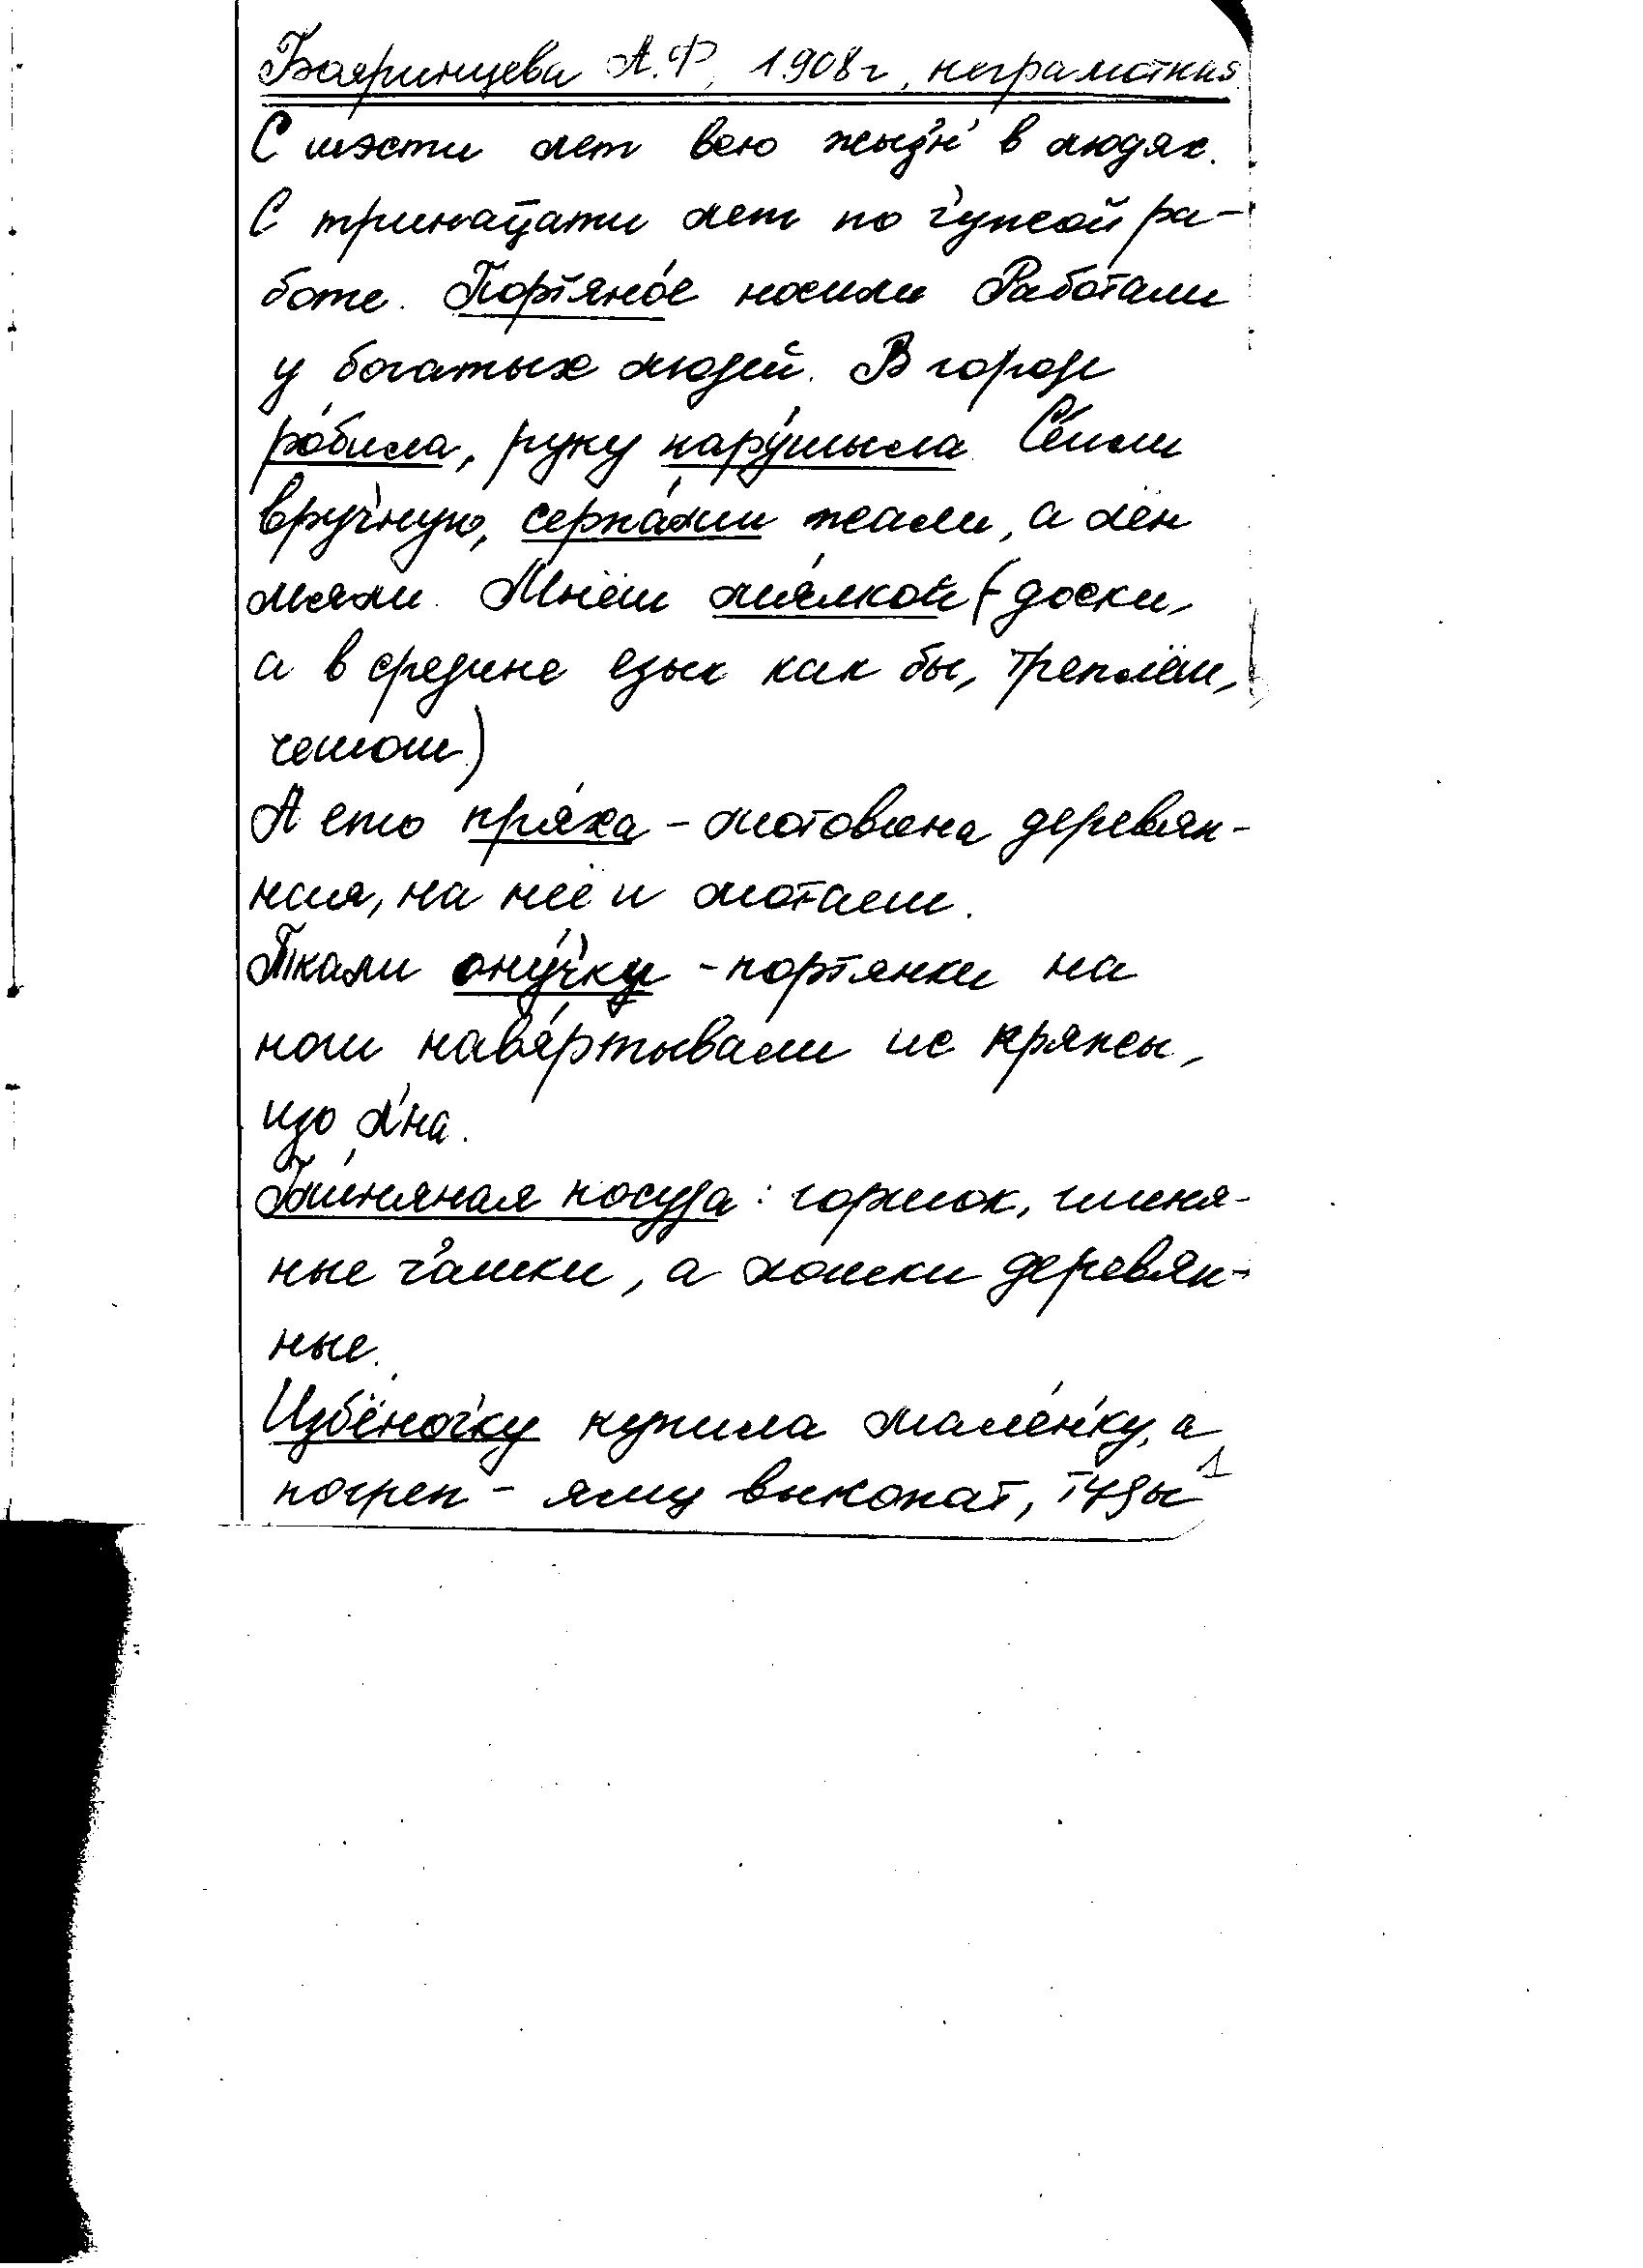 Бояринцева А.Ф, 1908г, неграмотная
С шэсти лет всю жыз'н' в людях.
С тринацати лет по ч'ужой ра-
боте. Портяно́е носили Работали
у богатых людей. В городе
ро́била, руку нару́шыла. Се́или
вруч'ную, серпа́ми жали, а лён
мяли. Мнёш мя́лкой (- доски,
а в средине език как бы, треплёш,
чешош)
А ето пря́ха - мотовина деревян-
ная, на неё и мотаеш.
Ткали ону́ч'ку - портянки на
ноги навёртывали ис пряжы,
изо л'на.
Гли́няная посуда: горшок, глиня-
ные ч'ашки, а лошки деревян-
ные.
Избёноч'ку купила мале́н'ку, а
погреп - яму выкопат, туды
1